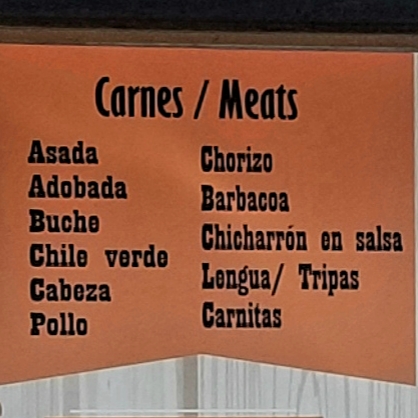 Carnes / Meats
Asada
Adobada
Buche
Chile verde
Cabeza
Pollo
Chorizo
Barbacoa
Chicharrón en salsa
Lengua/ Tripas
Carnitas